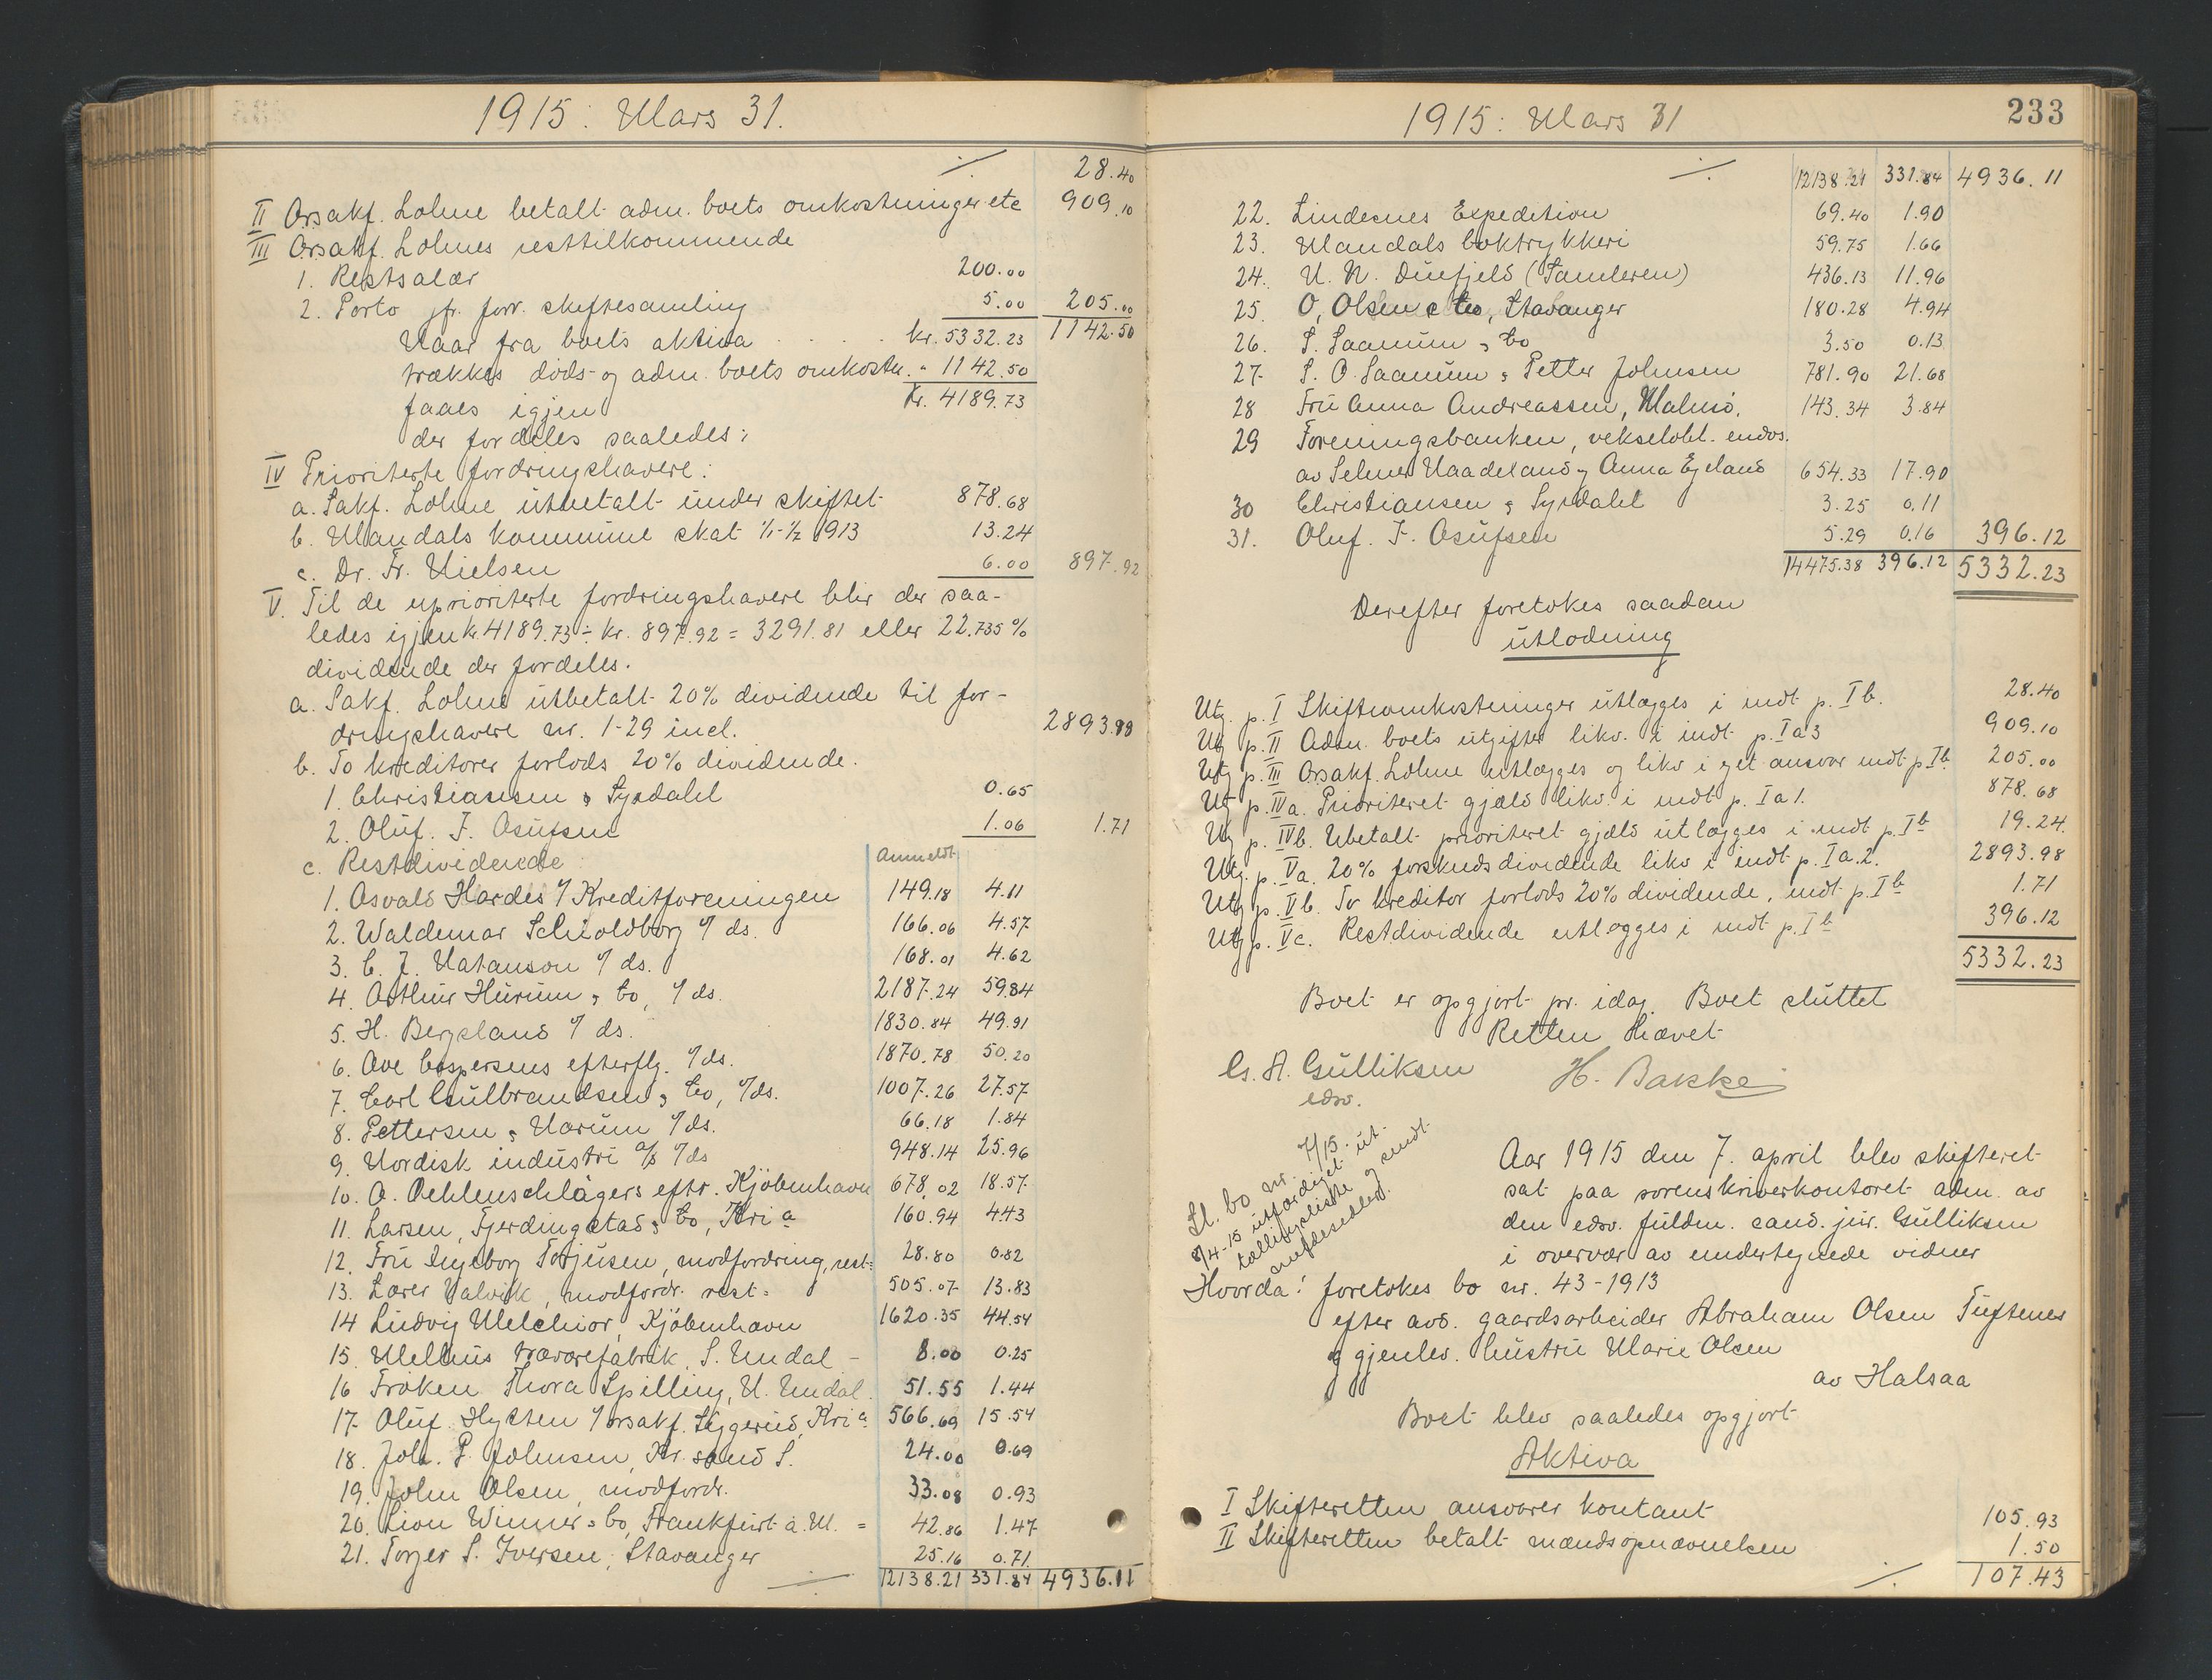 1915: Mars 31.
./. 28.40
II Orsakf. Lohne betalt adm. boets omkostninger etc 909.10
III Orsakf. Lohnes resttilkommende
1. Restsalær 200.00
2. Porto jfr. forr. skiftesamling 5.00 205.00
Naar fra boets aktiva . . . . kr. 5332.23 1142.50
trækkes döds- og adm. boets omkostn. - 1142.50
faaes igjen kr. 4189.73
der fordeles saaledes:
IV Prioriterte fordringshavere:
a. Sakf. Lohne utbetalt under skiftet 878.68
b. Mandals kommune skat 1/1-1/2 1913 13.24
c. Dr. Fr. Nielsen 6.00 897.92
V. Til de uprioriterte fordringshavere blir der saa-
ledes igjen kr. 4189.73 ÷ kr. 897.92 = 3291.81 eller 22.735 %
dividende der fordeles.
a. Sakf. Lohne utbetalt 20% dividende til for-
dringshavere nr. 1-29 incl. 2893.98
b. To kreditorer forlods 20% dividende.
1. Christiansen & Syrdahl 0.65
2. Oluf. F. Osufsen 1.06 1.71
c. Restdividende: Anmeldt
1. Osvald Hardes v/ Kreditforeningen 149.18 4.11
2. Waldemar Schioldborg v/ ds. 166.06 4.57
3. C. J. Natanson v/ ds. 168.01 4.62
4. Arthur Hürum & Co, v/ ds. 2187.24 59.84
5. H. Bergeland v/ ds. 1830.84 49.91
6. Ove Caspersens efterflg. v/ ds. 1870.78 50.20
7. Carl Gulbrandsen & Co, v/ds. 1007.26 27.57
8. Pettersen & Narum v/ds. 66.18 1.84
9. Nordisk industri A/S v/ds 948.14 25.96
10. A. Oehlenschlägers eftr. Kjöbenhavn 678.02 18.57
11. Larsen, Fjerdingstad & Co, Kria 160.94 4.43
12. Fru Ingeborg Torjusen, modfordring, rest = 28.80 0.82
13. Lærer Valvik, modfordr. rest = 505.07 13.83
14 Ludvig Melchior, Kjöbenhavn 1620.35 44.54
15. Melhus trævarefabrik, S. Undal - 8.00 0.25
16 Fröken Thora Spilling, N. Undal. 51.55 1.44
17. Oluf Hytten v/ orsakf. Seggerud, Kria 566.69 15.54
18. Joh. P. Johnsen, Kr.sand S. 24.00 0.69
19. John Olsen, modfordr. 33.08 0.93
20. Lion Winner & Co, Frankfurt a. M. = 42.86 1.47
21. Torger S. Iversen, Stavanger 25.16 0.71
./. 12138.21 331.84 4936.11
1915: Mars 31
233
./. 12138.21 331.84 4936.11
22. Lindesnes Expedition 69.40 1.90
23. Mandals boktrykkeri 59.75 1.66
24. U. N. Duefjeld (Samleren) 436.13 11.96
25. O, Olsen & Co, Stavanger 180.28 4.94
26. S. Saanum & Co 3.50 0.13
27. S. O. Saanum & Petter Johnsen 781.90 21.68
28 Fru Anna Andreassen, Malmö, 143.34 3.84
29 Foreningsbanken, vekselobl. endos.
av Selmer Naadeland og Anna Egeland 654.33 17.90
30 Christiansen & Syrdahl 3.25 0.11
31. Oluf. F. Osufsen 5.29 0.16 396.12
14475.38 396.12 5332.23
Derefter foretokes saadan
utlodning
Utg. p. I Skifteomkostninger utlægges i indt p. I b. 28.40
Utg p. II Adm. boets utgifter likv. i indt p. I a 3 909.10
Utg p. III Orsakf. Lohne utlægges og likv i eget ansvar indt p I b 205.00
Utg p. IV a. Prioritert gjæld likv. i indt p. I a 1. 878.68
Utg p. IV b. Ubetalt prioritert gjæld utlægges i indt p. I b 19.24
Utg. p. V a. 20% forskudsdividende likv i indt p. I a. 2. 2893.98
Utg p. V b. To kreditor forlods 20% dividende, indt p. I b 1.71
Utg p. V c. Restdividende utlægges i indt p. I b 396.12
5332.23
Boet er opgjort pr. idag. Boet sluttet
Retten hævet
Cs. A. Gulliksen H. Bakke
edsv.
Sl. bo nr. 7/15.
8/4-15 utfærdiget ut-
tallingsliste og sendt
anfdesedler.
Aar 1915 den 7. april blev skifteret
sat paa sorenskriverkontoret adm. av
den edsv. fuldm. cand. jur. Gulliksen
i overvær av undertegnede vidner
Hvorda: foretokes bo nr. 43-1913
efter avd. gaardsarbeider Abraham Olsen Tuftenes
og gjenlev. hustru Marie Olsen
av Halsaa
Boet blev saaledes opgjort
Aktiva
I Skifteretten ansvarer kontant 105.93
II Skifteretten betalt mændsopnævnelsen 1.50
./. 107.43